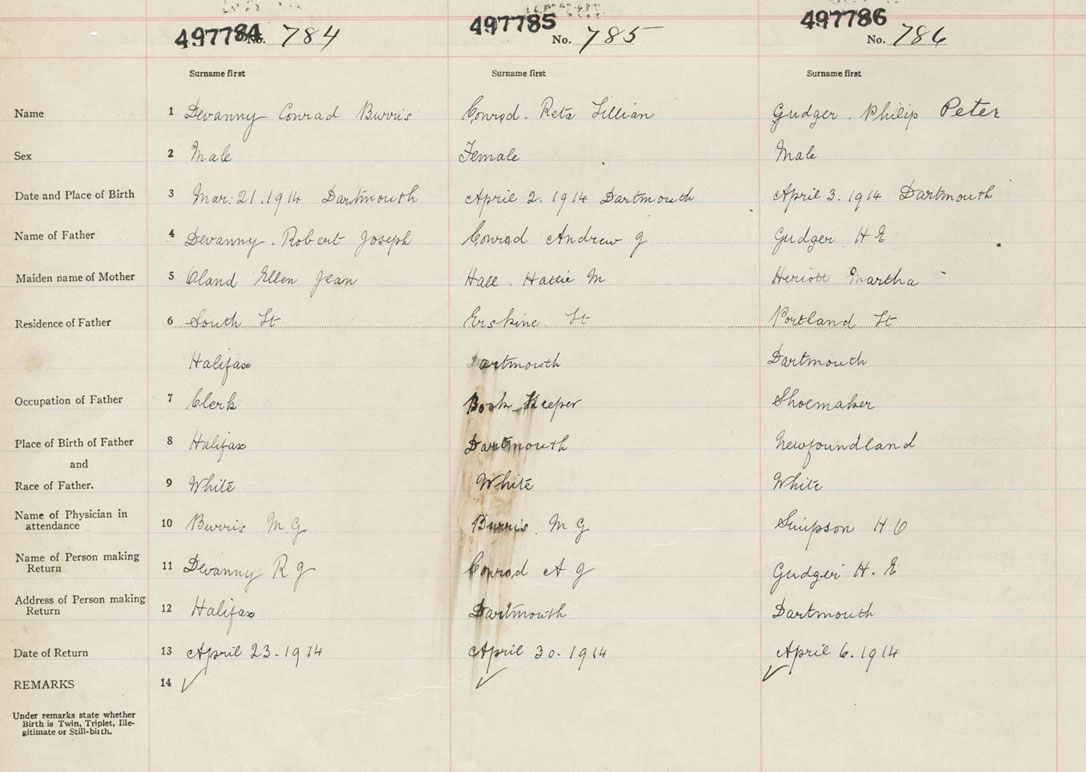 497784 497785 497786
No. 784 No. 785 No. 786
Surname first Surname first Surname first
Name 1 Devanny Conrad Burris Conrad. Reta Lillian Gudger. Philip Peter
Sex 2 Male Female Male
Date and Place of Birth 3 Mar: 21. 1914 Dartmouth April 2. 1914 Dartmouth April 3. 1914 Dartmouth
Name of Father 4 Devanny. Robert Joseph Conrad Andrew G Gudger H E
Maiden name of Mother 5 Oland Ellen Jean Hall. Hattie M Heriott Martha
Residence of Father 6 South St Erskine St Portland St
Halifax Dartmouth Dartmouth
Occupation of Father 7 Clerk Book-Keeper Shoemaker
Place of Birth of Father 8 Halifax Dartmouth Newfoundland
and
Race of Father. 9 White White White
Name of Physician in
attendance 10 Burris M G Burris. M G Simpson H O
Name of Person making
Return 11 Devanny R J Conrad A G Gudger H. E
Address of Person making
Return 12 Halifax Dartmouth Dartmouth
Date of Return 13 April 23. 1914 April 30. 1914 April 6. 1914
REMARKS 14 ✓ ✓ ✓
Under remarks state whether
Birth is Twin, Triplet, Ille-
gitimate or Still-birth.